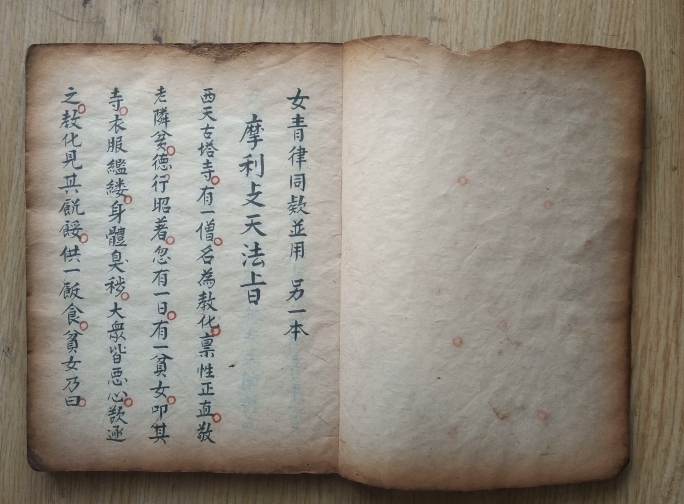 女青律同款並用 另一本
摩利支天法旨
西天古塔寺。有一僧。名為教化。禀性正直。敬
老隣貧。德行昭著。忽有一日。有一貧女。叩其
寺。衣服繿縷。身體臭秽。大衆皆惡心。欲逐
之。教化見其飢餒。供一飯食。貧女乃曰。